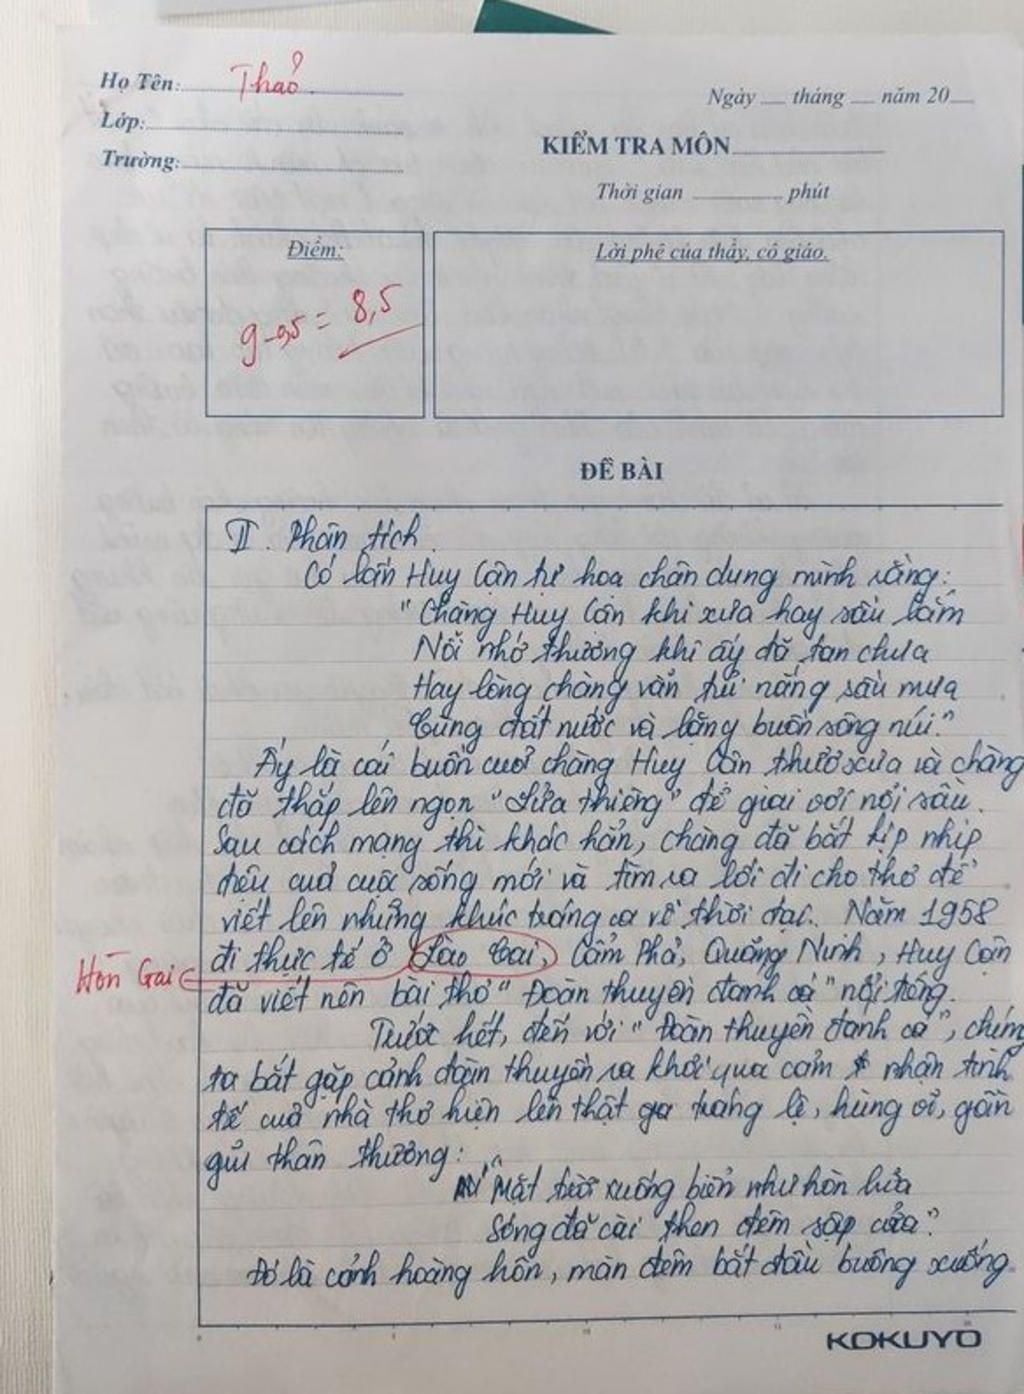 Họ Tên: Thảo
Ngày __ tháng __ năm 20__
Lớp:
KIỂM TRA MÔN
Trường:
Thời gian ______ phút
Điểm:
Lời phê của thầy, cô giáo.
9 - 0,5 = 8,5
ĐỀ BÀI
II. Phân tích.
Có lần Huy Cận tự họa chân dung mình rằng:
"Chàng Huy Cận khi xưa hay sầu lắm
Nỗi nhớ thương khi ấy đã tan chưa
Hay lòng chàng vẫn tủi nắng sầu mưa
Cùng đất nước và lặng buồn sông núi."
Ấy là cái buồn của chàng Huy Cận thuở xưa và chàng
đã thắp lên ngọn "Lửa thiêng" để giải với nỗi sầu.
Sau cách mạng thì khác hẳn, chàng đã bắt kịp nhịp
điệu của cuộc sống mới và tìm ra lối đi cho thơ để
viết lên những khúc tráng ca về thời đại. Năm 1958
đi thực tế ở Lào Cai, Cẩm Phả, Quảng Ninh, Huy Cận
Hòn Gai
đã viết nên bài thơ "Đoàn thuyền đánh cá" nổi tiếng.
Trước hết, đến với "Đoàn thuyền đánh cá", chúng
ta bắt gặp cảnh đoàn thuyền ra khơi qua cảm nhận tinh
tế của nhà thơ hiện lên thật tráng lệ, hùng vĩ, gần
gũi thân thương:
"Mặt trời xuống biển như hòn lửa
Sóng đã cài then đêm sập cửa."
Đó là cảnh hoàng hôn, màn đêm bắt đầu buông xuống.
KOKUYO